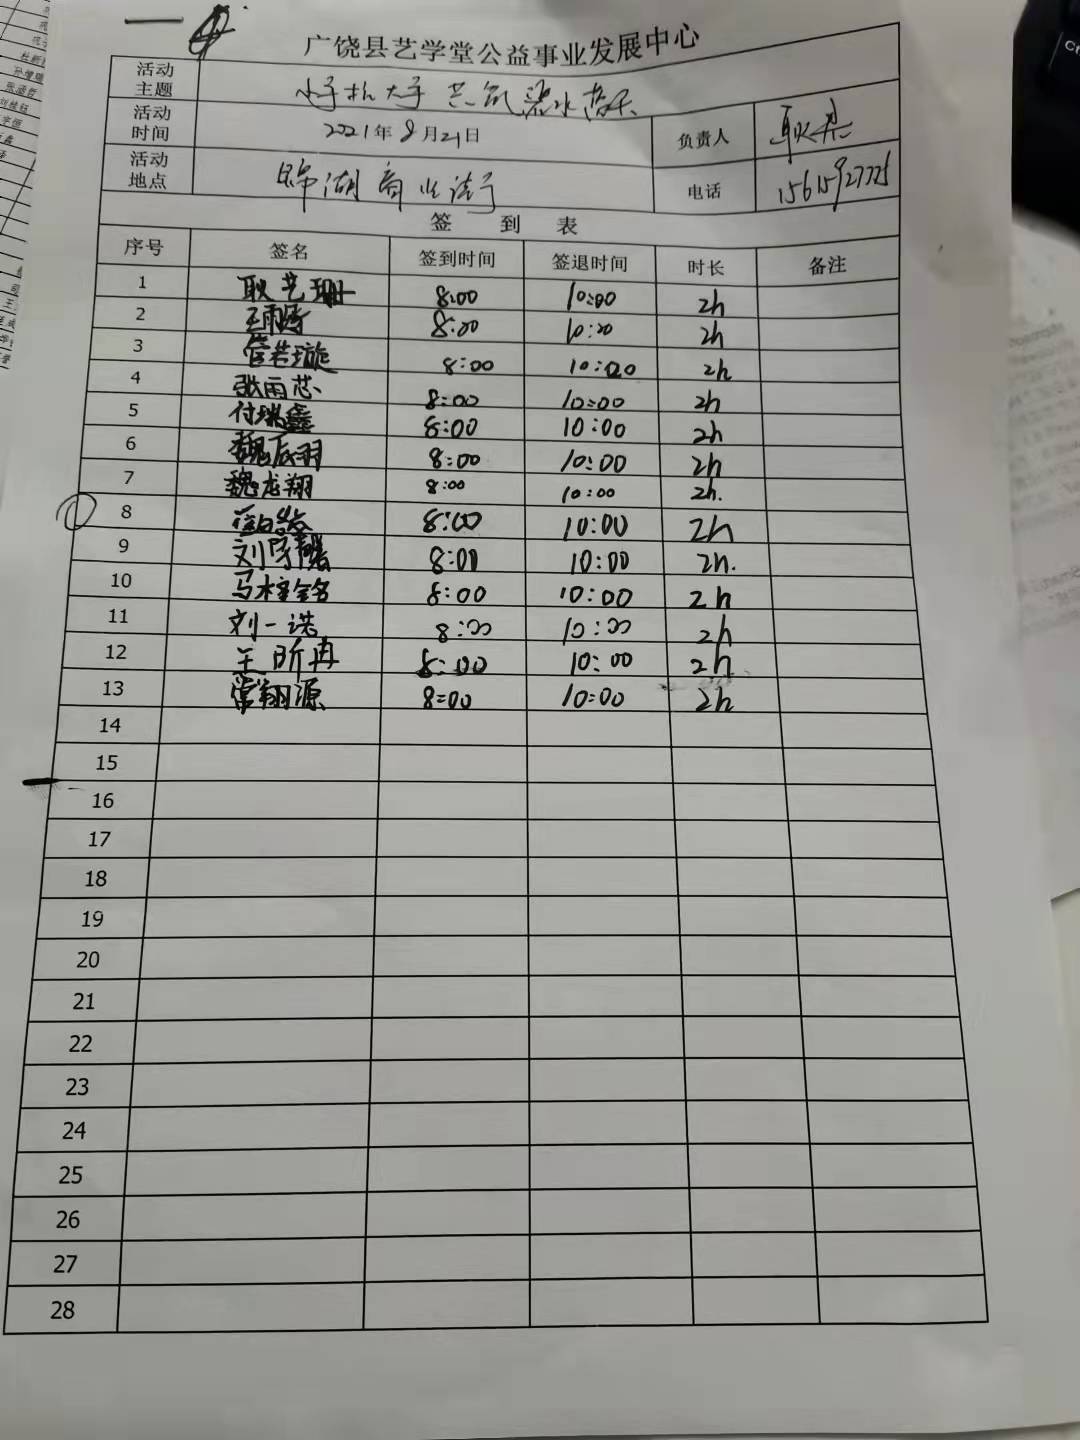 广饶县艺学堂公益事业发展中心
活动主题 小手拉大手 共筑碧水蓝天
活动时间 2021年8月21日 负责人 耿
活动地点 锦湖商业街 电话
签 到 表
序号 签名 签到时间 签退时间 时长 备注
1 耿艺珊 8:00 10:00 2h
2 王雨 8:00 10:00 2h
3 管若璇 8:00 10:00 2h
4 张雨芯 8:00 10:00 2h
5 付瑞鑫 8:00 10:00 2h
6 魏辰羽 8:00 10:00 2h
7 魏龙翔 8:00 10:00 2h.
8 8:00 10:00 2h
9 刘 8:00 10:00 2h.
10 马 8:00 10:00 2h
11 刘一诺 8:00 10:00 2h
12 王昕冉 8:00 10:00 2h
13 常翔源 8:00 10:00 2h
14
15
16
17
18
19
20
21
22
23
24
25
26
27
28